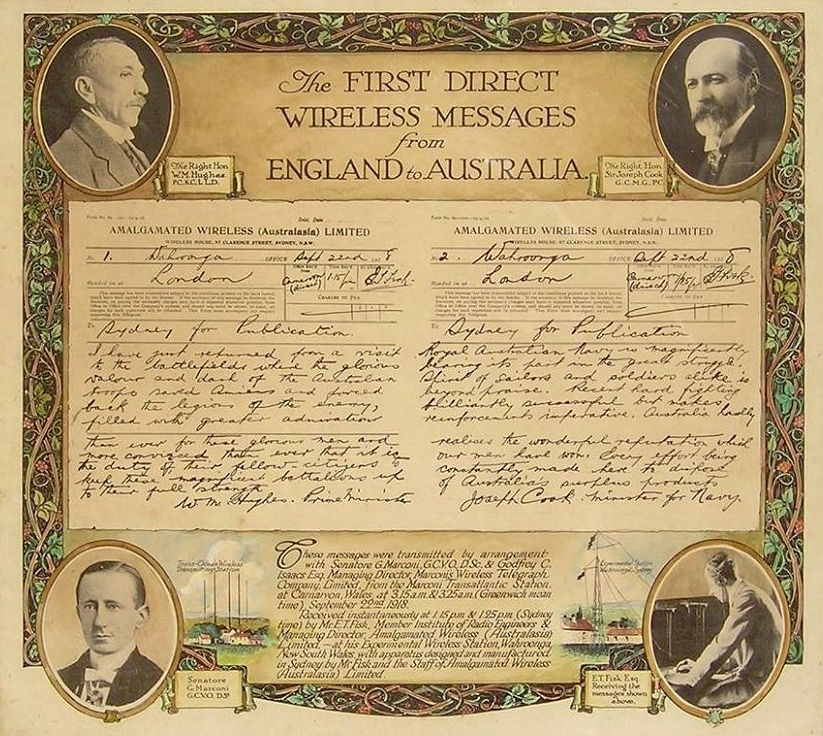 The FIRST DIRECT
WIRELESS MESSAGES
from
ENGLAND to AUSTRALIA.
The Right Hon
W.M. Hughes
P.C, K.C, L.L.D.
The Right Hon
Sir Joseph Cook
G.C.M.G., P.C.
AMALGAMATED WIRELESS (Australasia) LIMITED
WIRELESS HOUSE, 97 CLARENCE STREET, SYDNEY, N.S.W.
No. 1. Wahroonga OFFICE Sept 22nd 1918
Handed in at London
Carnarvon (direct) 1.15 p.m.
CHARGES TO PAY
To Sydney for Publication.
I have just returned from a visit
to the battlefields where the glorious
valour and dash of the Australian
troops saved Amiens and forced
back the legions of the enemy,
filled with greater admiration
than ever for these glorious men and
more convinced than ever that it is
the duty of their fellow-citizens to
keep these magnificent battalions up
to their full strength.
W. M. Hughes. Prime Minister
AMALGAMATED WIRELESS (Australasia) LIMITED
WIRELESS HOUSE, 97 CLARENCE STREET, SYDNEY, N.S.W.
No. 2. Wahroonga OFFICE Sept 22nd 1918
Handed in at London
Carnarvon (direct) 1.25 p.m.
CHARGES TO PAY
To Sydney for Publication
Royal Australian Navy is magnificently
bearing its part in the great struggle.
Spirit of sailors and soldiers alike is
beyond praise. Recent hard fighting
brilliantly successful but makes
reinforcements imperative. Australia hardly
realises the wonderful reputation which
our men have won. Every effort being
constantly made here to dispose
of Australia's surplus products
Joseph Cook. Minister for Navy.
Trans-Ocean Wireless
Transmitting Station
These messages were transmitted by arrangement
with Senatore G. Marconi, G.C.V.O., D.Sc. & Godfrey C.
Isaacs Esq. Managing Director, Marconi's Wireless Telegraph
Company, Limited, from the Marconi Transatlantic Station.
at Carnarvon, Wales, at 3.15 a.m. & 3.25 a.m. (Greenwich mean
time), September 22nd, 1918.
Received instantaneously at 1.15 p.m & 1.25 p.m (Sydney
time) by Mr. E.T. Fisk, Member Institute of Radio Engineers &
Managing Director, Amalgamated Wireless (Australasia)
Limited — at his Experimental Wireless Station, Wahroonga,
New South Wales, with apparatus designed and manufactured
in Sydney by Mr Fisk and the Staff of Amalgamated Wireless
(Australasia) Limited.
Senatore
G. Marconi
G.C.V.O. D.Sc.
E.T. Fisk Esq.
Receiving the
messages shown
above.